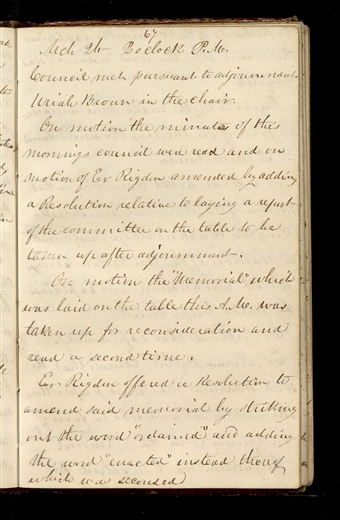 67
Mch 26 2 oclock P.M.
Council met pursuant to adjournment
Uriah Brown in the chair.
On motion the minutes of this
mornings council were read and on
motion of Er Rigdon amended by adding
a Resolution relative to laying a report
of the committee on the table to be
taken up after adjournment.
On motion the "Memorial" which
was laid on the table this A.M. was
taken up for reconsideration and
read a second time.
Er Rigdon offered a Resolution to
amend said memorial by striking
out the word "ordained" and adding
the word "enacted" instead thereof,
which was seconded